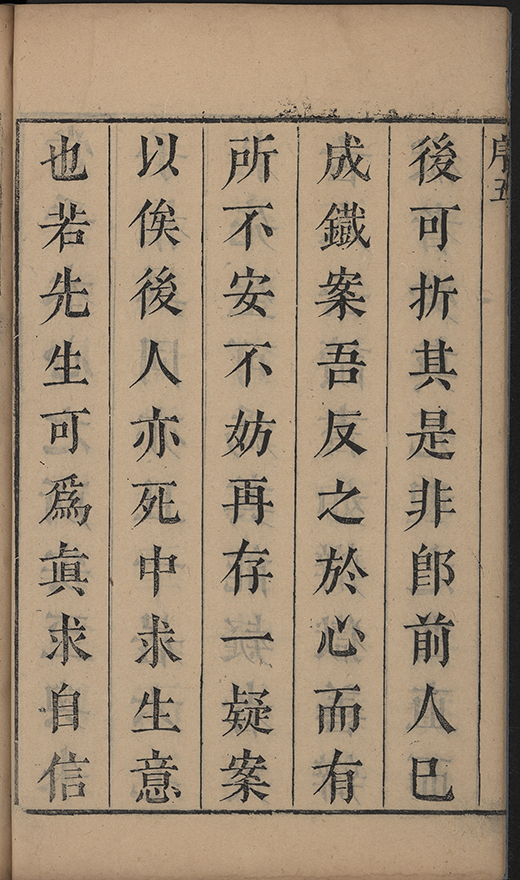 序五
後可折其是非卽前人已
成鐵案吾反之於心而有
所不安不妨再存一疑案
以俟後人亦死中求生意
也若先生可爲眞求自信